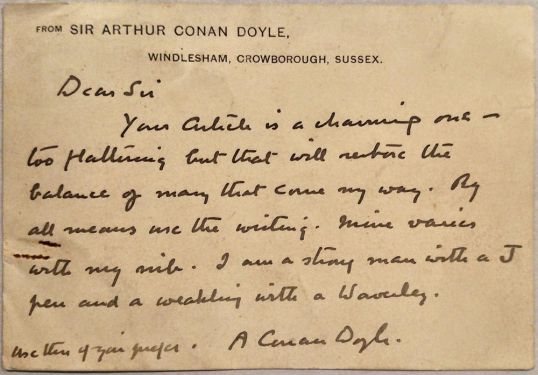 FROM SIR ARTHUR CONAN DOYLE,
WINDLESHAM, CROWBOROUGH, SUSSEX.
Dear Sir
Your Article is a charming one —
too flattering but that will restore the
balance of many that come my way. By
all means use the writing. Mine varies
with my nib. I am a strong man with a J
pen and a weakling with a Waverley.
use this if you prefer. A Conan Doyle.